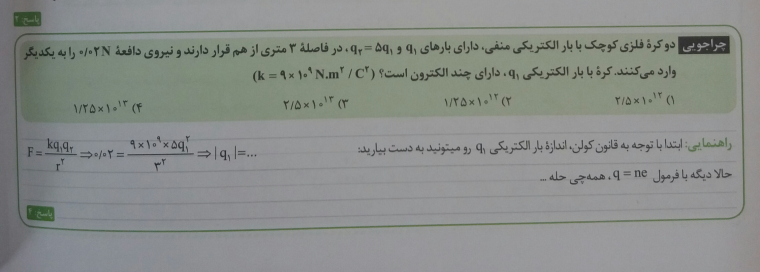 پاسخ: ۲
چراجویی دو کرهٔ فلزی کوچک با بار الکتریکی منفی، دارای بارهای q₁ و q₂ = ۵q₁، در فاصلهٔ ۳ متری از هم قرار دارند و نیروی دافعهٔ ۰/۰۲ N را به یکدیگر
وارد می‌کنند. کرهٔ با بار الکتریکی q₁، دارای چند الکترون است؟ (k = ۹ × ۱۰⁹ N.m² / C²)
۱) ۲/۵×۱۰¹² ۲) ۱/۲۵×۱۰¹² ۳) ۲/۵×۱۰¹³ ۴) ۱/۲۵×۱۰¹³
راهنمایی: ابتدا با توجه به قانون کولن، اندازهٔ بار الکتریکی q₁ رو میتونید به دست بیارید: F = kq₁q₂ / r² ⇒ ۰/۰۲ = ۹×۱۰⁹×۵q₁² / ۳² ⇒ |q₁| = ...
حالا دیگه با فرمول q = ne، همه‌چی حله ...
پاسخ: ۴